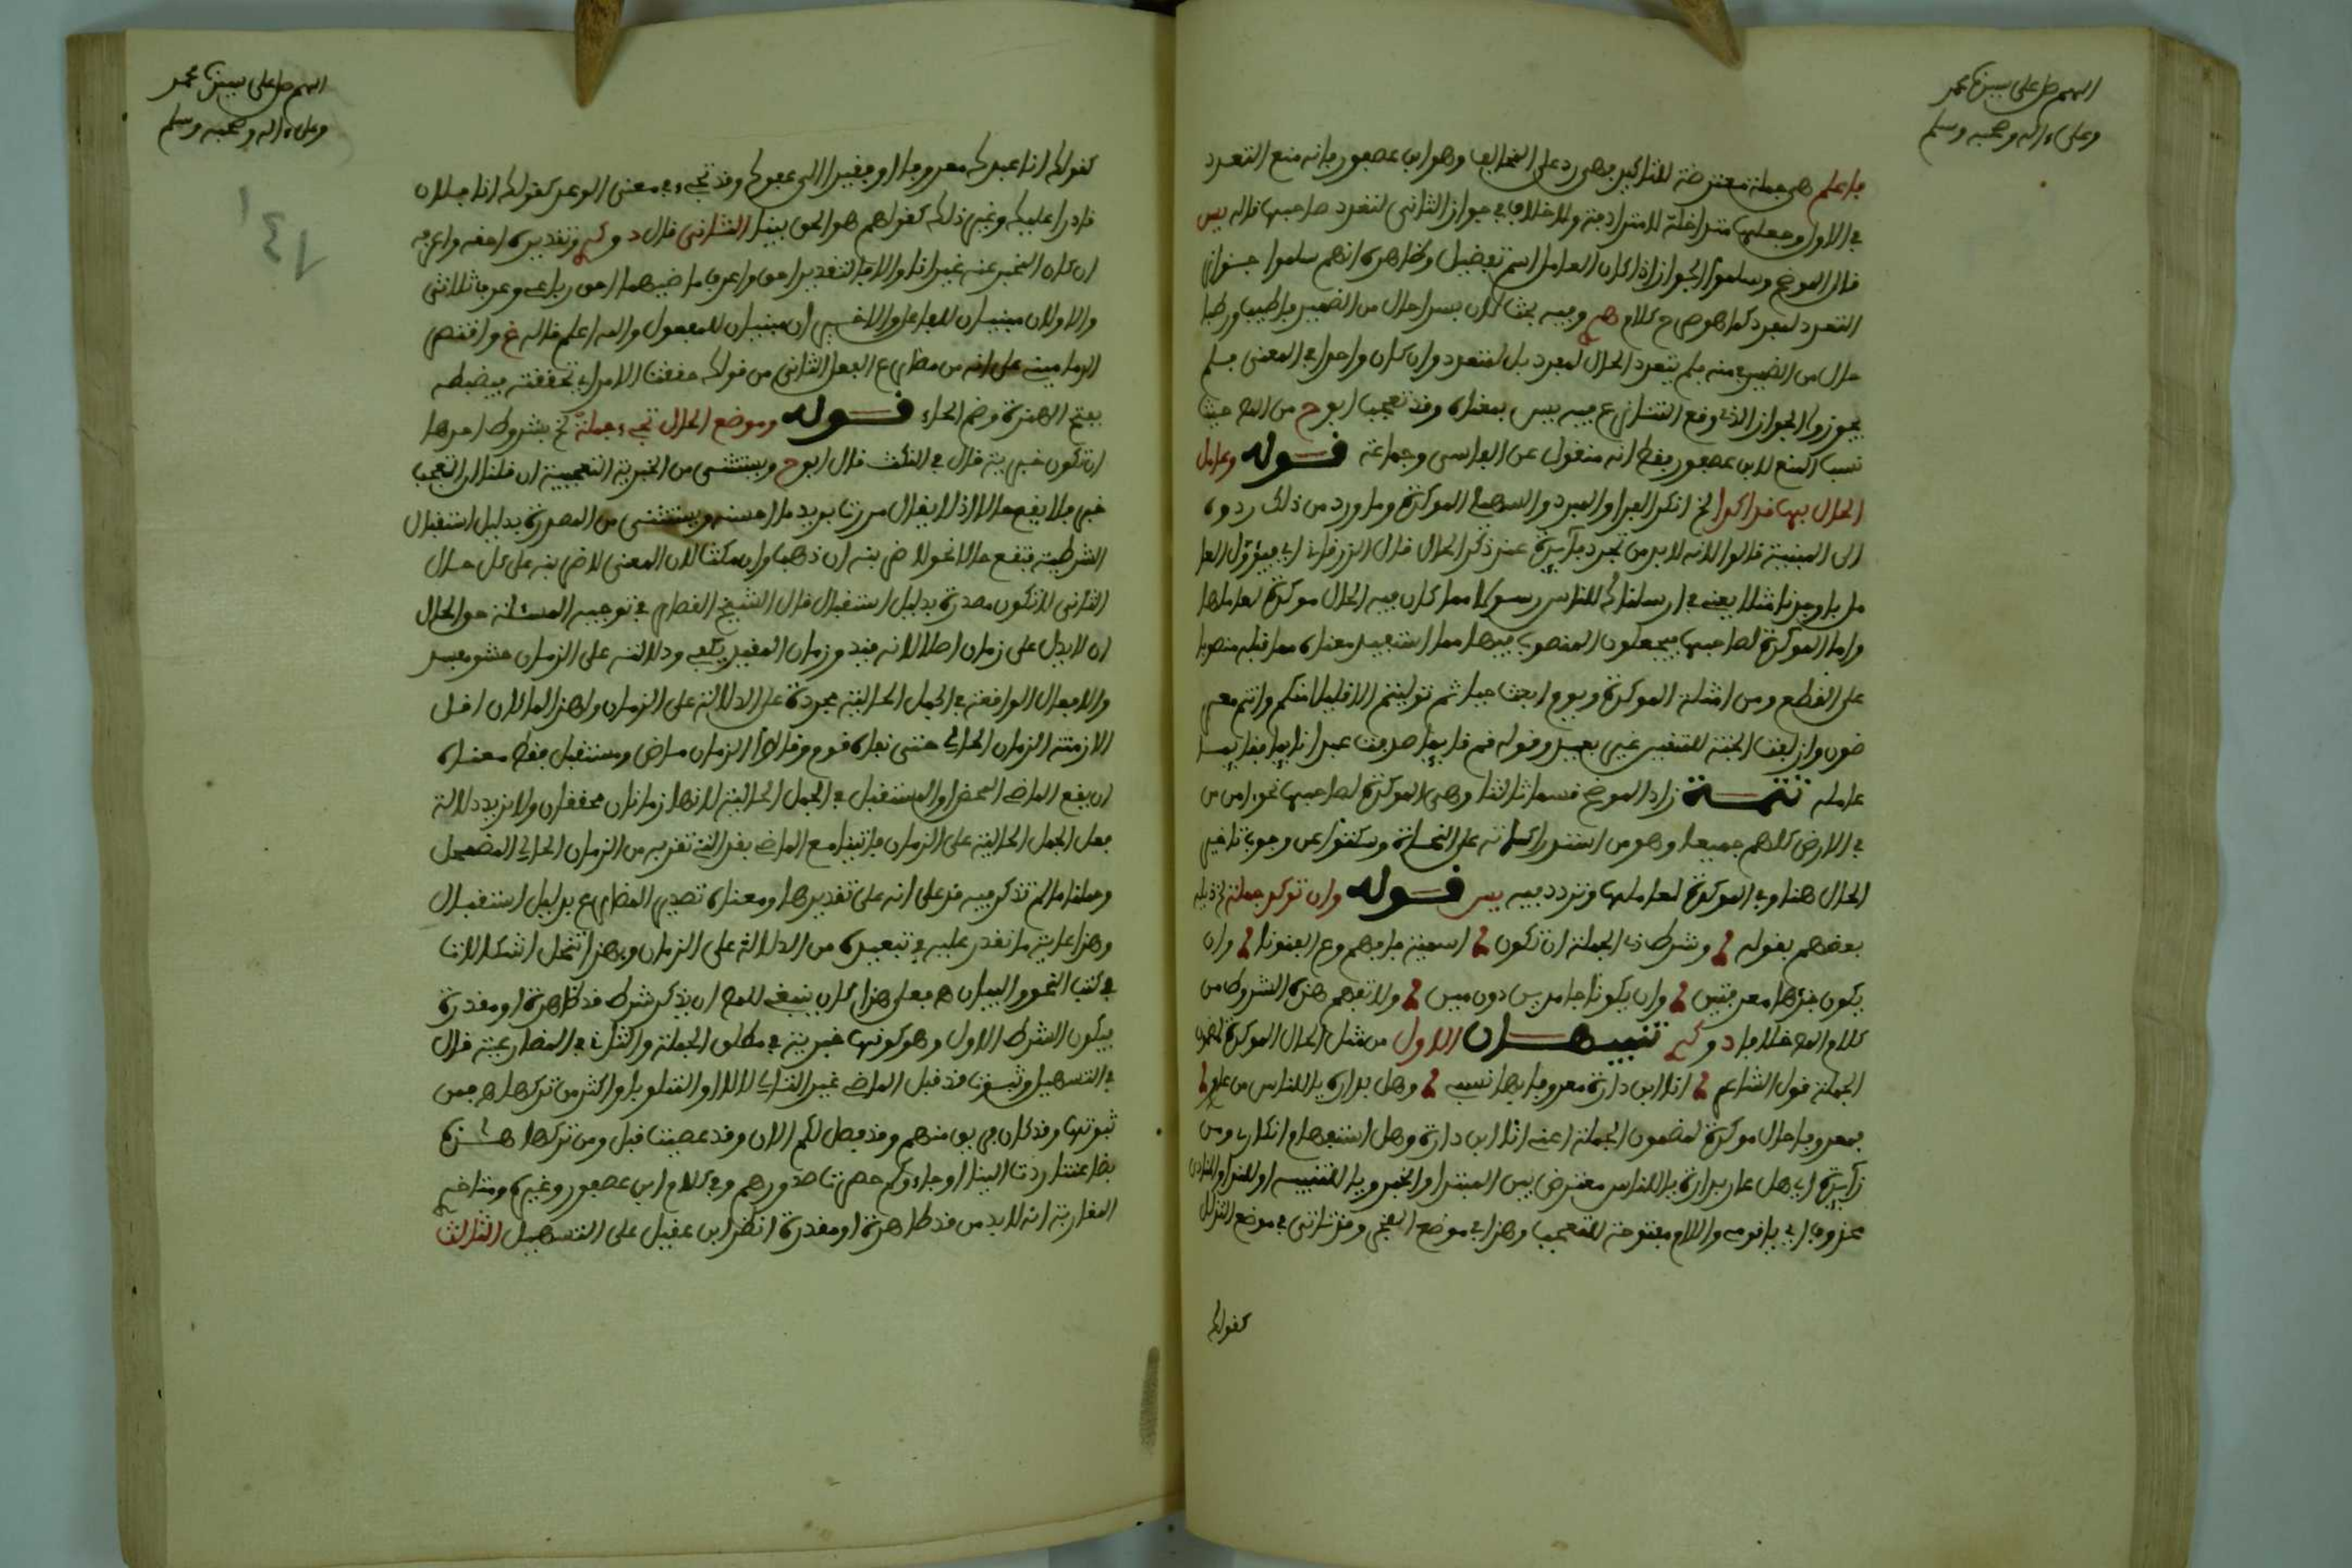 اللهم صل على سيدنا محمد
وعلى ءاله وصحبه وسلم
فاعلم هي جملة معترضة للتاكيد فهي رد على المخالف وهو ابن عصفور فانه منع التعدد
في الاول وجعلها متداخلة لا مترادفة ولا خلاف في جواز الثاني لتعدد صاحبها قاله يس
قال الموضح وسلموا الجواز اذا كان العامل اسم تفضيل وظاهره انهم سلموا جواز
التعدد لمفرد كما هو ص ح كلام هم وفيه بحث لان بسرا حال من الضمير في اطيب ورطبا
حال من الضمير في منه فلم يتعدد الحال لمفرد بل لمتعدد وان كان واحدا في المعنى فلم
يجوزوا الجواز الذي وقع التنازع فيه يس بمعناه وقد تعجب ابو ح من المص حيث
نسب المنع لابن عصفور فقط انه منقول عن الفارسي وجماعة قوله وعامل
الحال بها قد اكدا الخ انكر الفرا والمبرد والسهيلي الموكدة وما ورد من ذلك ردوه
الى المبينة قالوا لانه لا بد من تجدد فائدة عند ذكر الحال قال الزرقاني اي فيؤول العا
مل باوجدنا مثلا يعني في ارسلناك للناس رسولا مما كان فيه الحال موكدة لعاملها
واما الموكدة لصاحبها فيجعلون المنصوب فيها مما استفيد معناه مما قبله منصوبا
على القطع ومن امثلة الموكدة ويوم ابعث حيا ثم توليتم الا قليلا منكم وانتم معر
ضون وازلفت الجنة للمتقين غير بعيد وقوله قم قايما صادفت عبدا نايما فقايما
عامله تتمة زاد الموضح قسما ثالثا وهي الموكدة لصاحبها نحو لامن من
في الارض كلهم جميعا وهو من استدراكاته على النحاة وسكتوا عن وجوب تاخير
الحال هنا وفي الموكدة لعاملها وتردد فيه يس قوله وان توكد جملة الخ ذيله
بعضهم بقوله وشرط ذي الجملة ان تكون اسمية فافهم وع الفنونا وان
يكون جزؤها معرفتين وان يكونا جامدين دون مين ولا تفهم هذه الشروط من
كلام المص خلافا د وكـ تنبيهان الاول من مثل الحال الموكدة لمضمون
الجملة قول الشاعر انا ابن دارة معروفا بها نسبي وهل بدارة يا للناس من عار
فمعروفا حال موكدة لمضمون الجملة اعني انا ابن دارة وهل استفهام انكاري ومن
زائدة اي هل عار بدارة يا للناس معترض بين المبتدا والخبر ويا للتنبيه او للندا والمنادى
محذوف اي يا قومي واللام مفتوحة للتعجب وهذا في موضع الفخر وقد تاتي في موضع التذلل
كقولك
اللهم صل على سيدنا محمد
وعلى ءاله وصحبه وسلم
131
كقولك انا عبدك معروفا او فقيرا الى عفوك وقد تجيء في معنى الوعيد كقولك انا فلان
قادرا عليك وغير ذلك كقولهم هو الحق بينا الثاني قال د وكـ وتقديره احقه واعرفه
ان كان المخبر عنه غير انا والا فالتقدير احق واعرف ماضيهما احق رباعي وعرف ثلاثي
والاولان مبنيان للفاعل والاخيران مبنيان للمفعول والله اعلم قاله غ واقتص
الدماميني على انه من مضارع الفعل الثاني من قولك حققت الامر اي تحققته فيضبطه
بفتح الهمزة وضم الحاء قوله وموضع الحال تجيء جملة الخ بشروط احدها
ان تكون خبرية قال في النكث قال ابو ح ويستثنى من الخبرية التعجبية ان قلنا ان التعجب
خبر فلا يقع حالا اذ لا يقال مررت بزيد ما احسنه ويستثنى من المصدرة بدليل استقبال
الشرطية فتقع حالا نحو لاضربنه ان ذهب وان مكث لان المعنى لاضربنه على كل حال
الثاني الا تكون مصدرة بدليل استقبال قال الشيخ القصار في توجيه المسئلة حق الحال
ان لا يدل على زمان اصلا لانه قيد وزمان المقيد يكفي ودلالته على الزمان حشو مفسد
والافعال الواقعة في الجمل الحالية مجردة عن الدلالة على الزمان ولهذا لما كان اقل
الازمنة الزمان الحالي حتى نفاه قوم وقالوا الزمان ماض ومستقبل فقط معناه
ان يقع الماضي المحض او المستقبل في الجمل الحالية لانهما زمانان محققان ولا يزيد دلالة
فعل الجمل الحالية على الزمان فاتينا مع الماضي بقد التي تقربه من الزمان الحالي المضمحل
وحملنا ما لم تذكر فيه قد على انه على تقديرها ومعناه تصدير المضارع بدليل استقبال
وهذا غاية ما نقدر عليه في تبعيده من الدلالة على الزمان وبهذا تنحل اشكالات
في كتب النحو والبيان هـ فعلى هذا كان ينبغي للمص ان يذكر شرط قد ظاهرة او مقدرة
فيكون الشرط الاول وهو كونها خبرية في مطلق الجملة والثاني في المضارعية قال
في التسهيل وثبوت قد قبل الماضي غير التالي لالا او المتلو باو اكثر من تركها هـ فمن
ثبوتها وقد كان فريق منهم وقد فصل لكم الان وقد عصيت قبل ومن تركها هذه
بضاعتنا ردت الينا او جاءوكم حصرت صدورهم وفي كلام ابن عصفور وغيره ومتاخر
المغاربة انه لا بد من قد ظاهرة او مقدرة انظر ابن عقيل على التسهيل الثالث